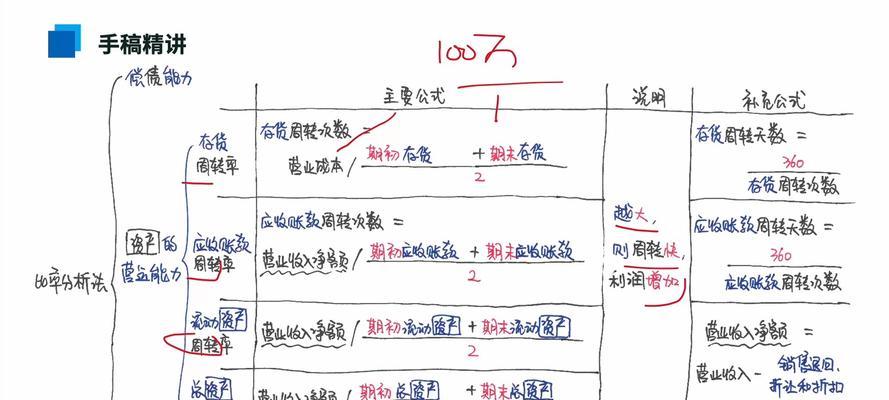 手稿精讲
100万
1
偿债能力
主要公式
说明
补充公式
存货
周转率
存货周转次数 =
营业成本 / 期初存货 + 期末存货
2
存货周转天数 =
360
存货周转次数
比率分析法
资产的
营运能力
应收账款
周转率
应收账款周转次数 =
营业收入净额 / 期初应收账款 + 期末应收账款
2
越大,
则周转快,
利润增加
应收账款周转天数 =
360
应收账款周转次数
流动资产
周转率
营业收入净额 / 期初流动资产 + 期末流动资产
2
营业收入净额 =
营业收入 - 销售退回、
折让和折扣
总资产
营业收入净额 / 期初总资产 + 期末总资产